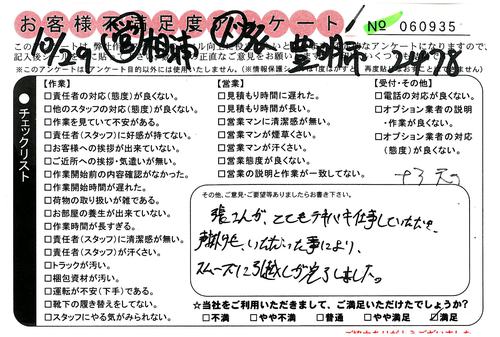 お客様不満足度アンケート!
№ 060935
10/29 相浦 豊明市
【作業】
□責任者の対応(態度)が良くない。
□他のスタッフの対応(態度)が良くない。
□作業を見ていて不安がある。
□責任者(スタッフ)に好感が持てない。
□お客様への挨拶が出来ていない。
□ご近所への挨拶・気遣いが無い。
□作業開始前の内容確認がなかった。
□作業開始時間が遅れた。
□荷物の取り扱いが雑である。
□お部屋の養生が出来ていない。
□作業時間が長すぎる。
□責任者(スタッフ)に清潔感が無い。
□責任者(スタッフ)が汗くさい。
□トラックが汚い。
□梱包資材が汚い。
□運転が不安(下手)である。
□靴下の履き替えをしてない。
□スタッフにやる気がみられない。
【営業】
□見積もり時間に遅れた。
□見積もり時間が長い。
□営業マンに清潔感が無い。
□営業マンが煙草くさい。
□営業マンが汗くさい。
□営業態度が良くない。
□営業の説明と作業が一致してない。
【受付・その他】
□電話の対応が良くない。
□オプション業者の説明
・作業が良くない。
□オプション業者の対応
(態度)が良くない。
チェックリスト
その他、ご意見・ご要望等ありましたらお書き下さい。
張さんが、とてもテキパキ仕事していただき、
声掛けを、いただいた事により、
スムーズに引越しが完了しました。
☆当社をご利用いただきまして、ご満足いただけたでしょうか?
□不満 □やや不満 □普通 □やや満足 ☑満足
ご協力ありがとうございました